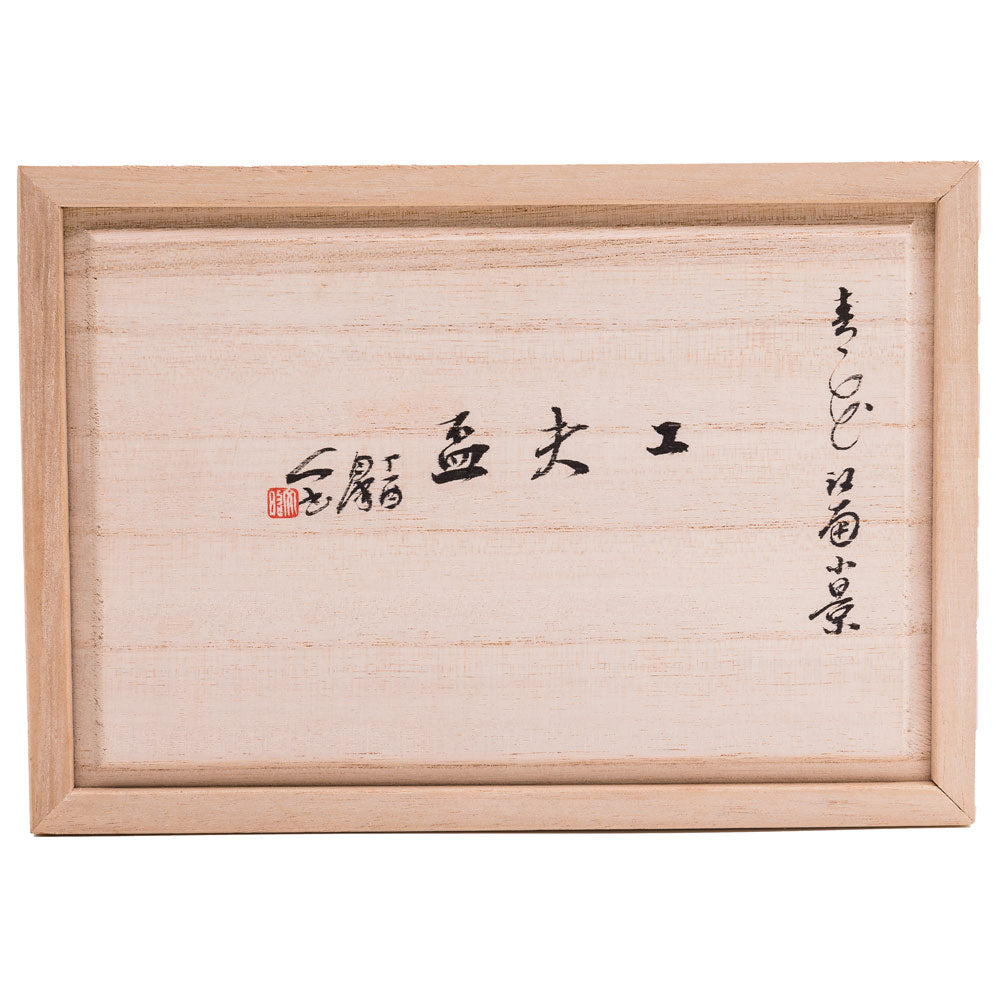 青花江南小景
工夫盃
丁酉